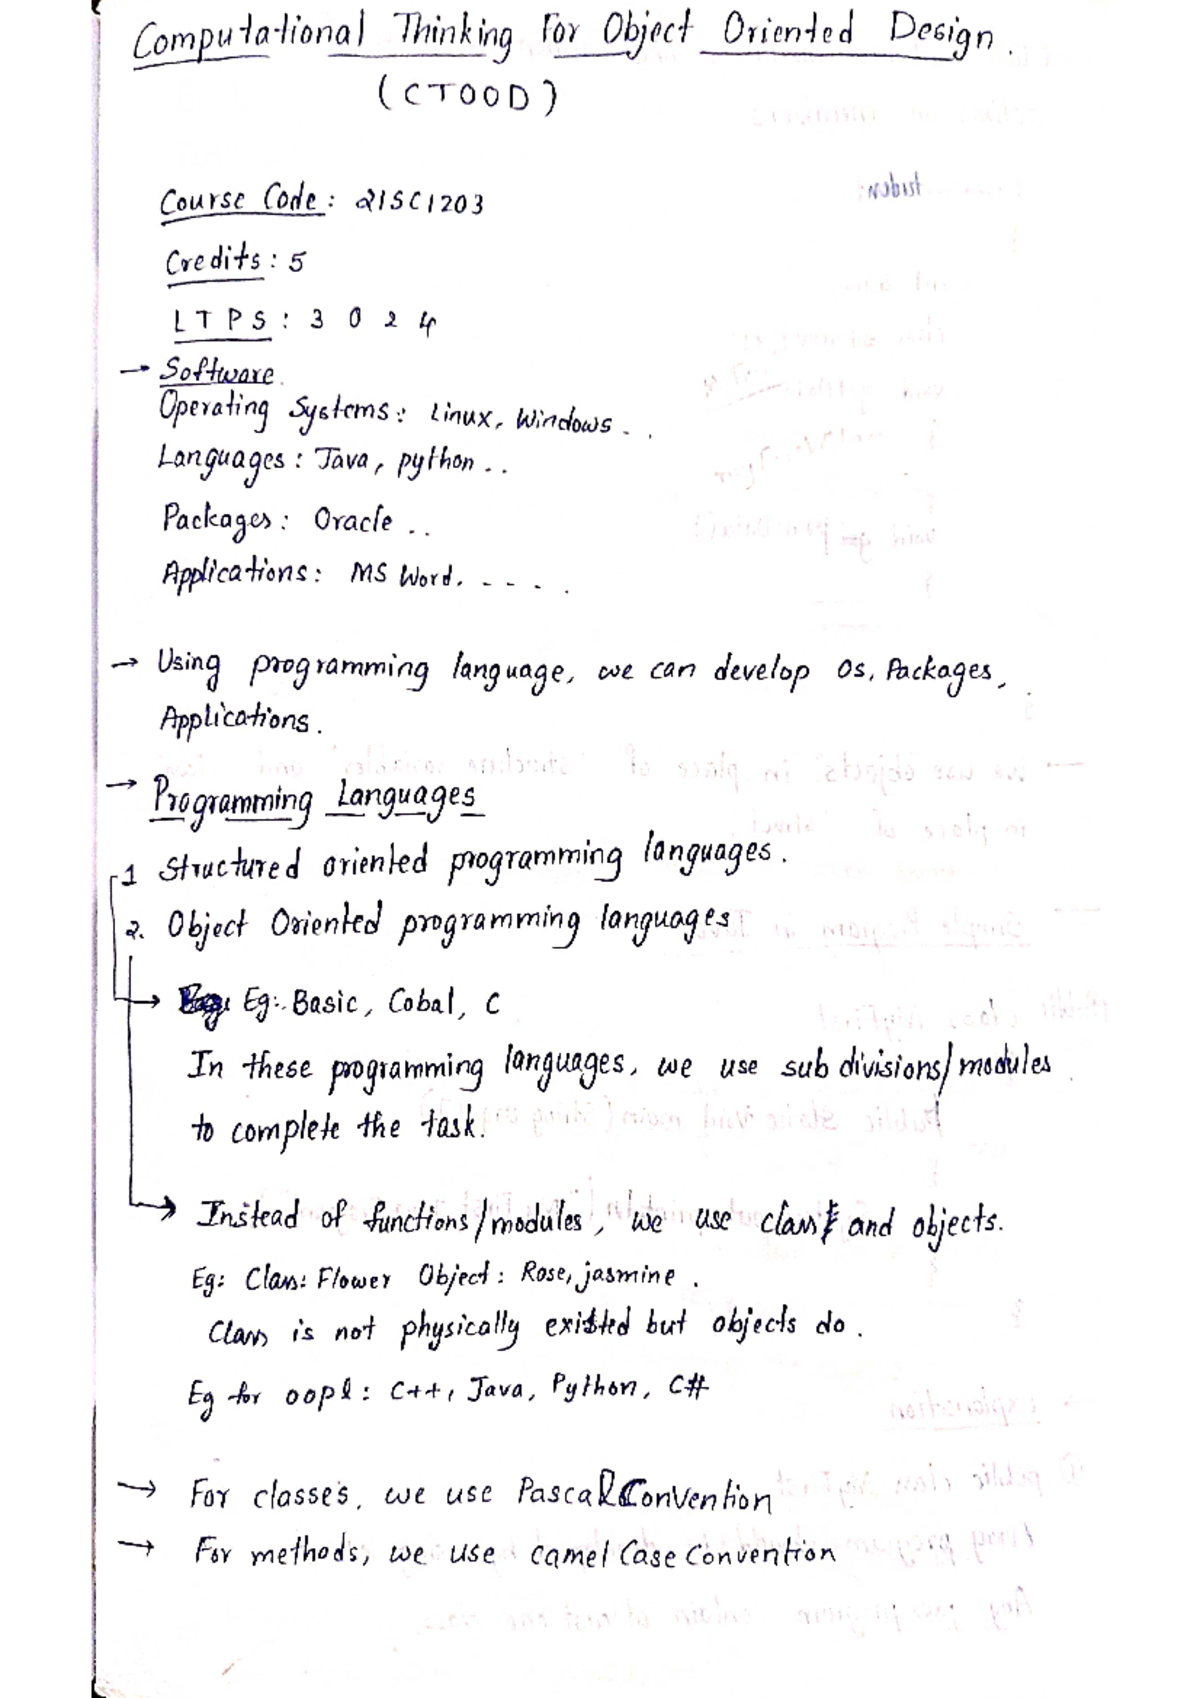 Computational Thinking For Object Oriented Design.
(CTOOD)
Course Code: 21SC1203
Credits: 5
LTPS: 3 0 2 4
→ Software.
Operating Systems: Linux, Windows...
Languages: Java, python..
Packages: Oracle ..
Applications: MS Word. - - - .
→ Using programming language, we can develop OS, Packages,
Applications.
→ Programming Languages
1 Structured oriented programming languages.
2. Object Oriented programming languages
→ Eg:- Basic, Cobal, C
In these programming languages, we use sub divisions/modules
to complete the task.
→ Instead of functions/modules, we use class and objects.
Eg: Class: Flower Object: Rose, jasmine.
Class is not physically existed but objects do.
Eg for oopl: C++, Java, Python, C#
→ For classes, we use Pascal Convention
→ For methods, we use camel Case Convention